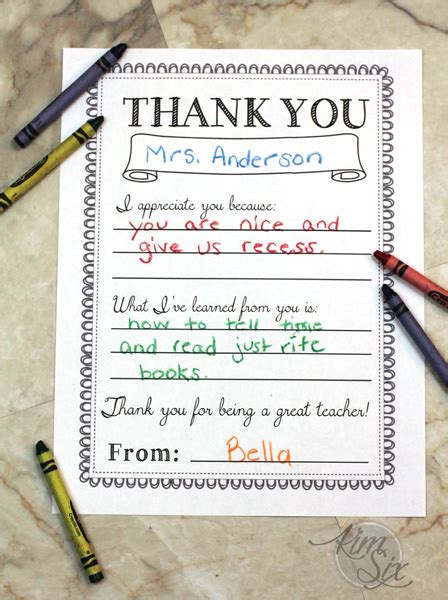 THANK YOU
Mrs. Anderson
I appreciate you because:
you are nice and
give us recess.
What I've learned from you is:
how to tell time
and read just rite
books.
Thank you for being a great teacher!
From: Bella
Kim
Six